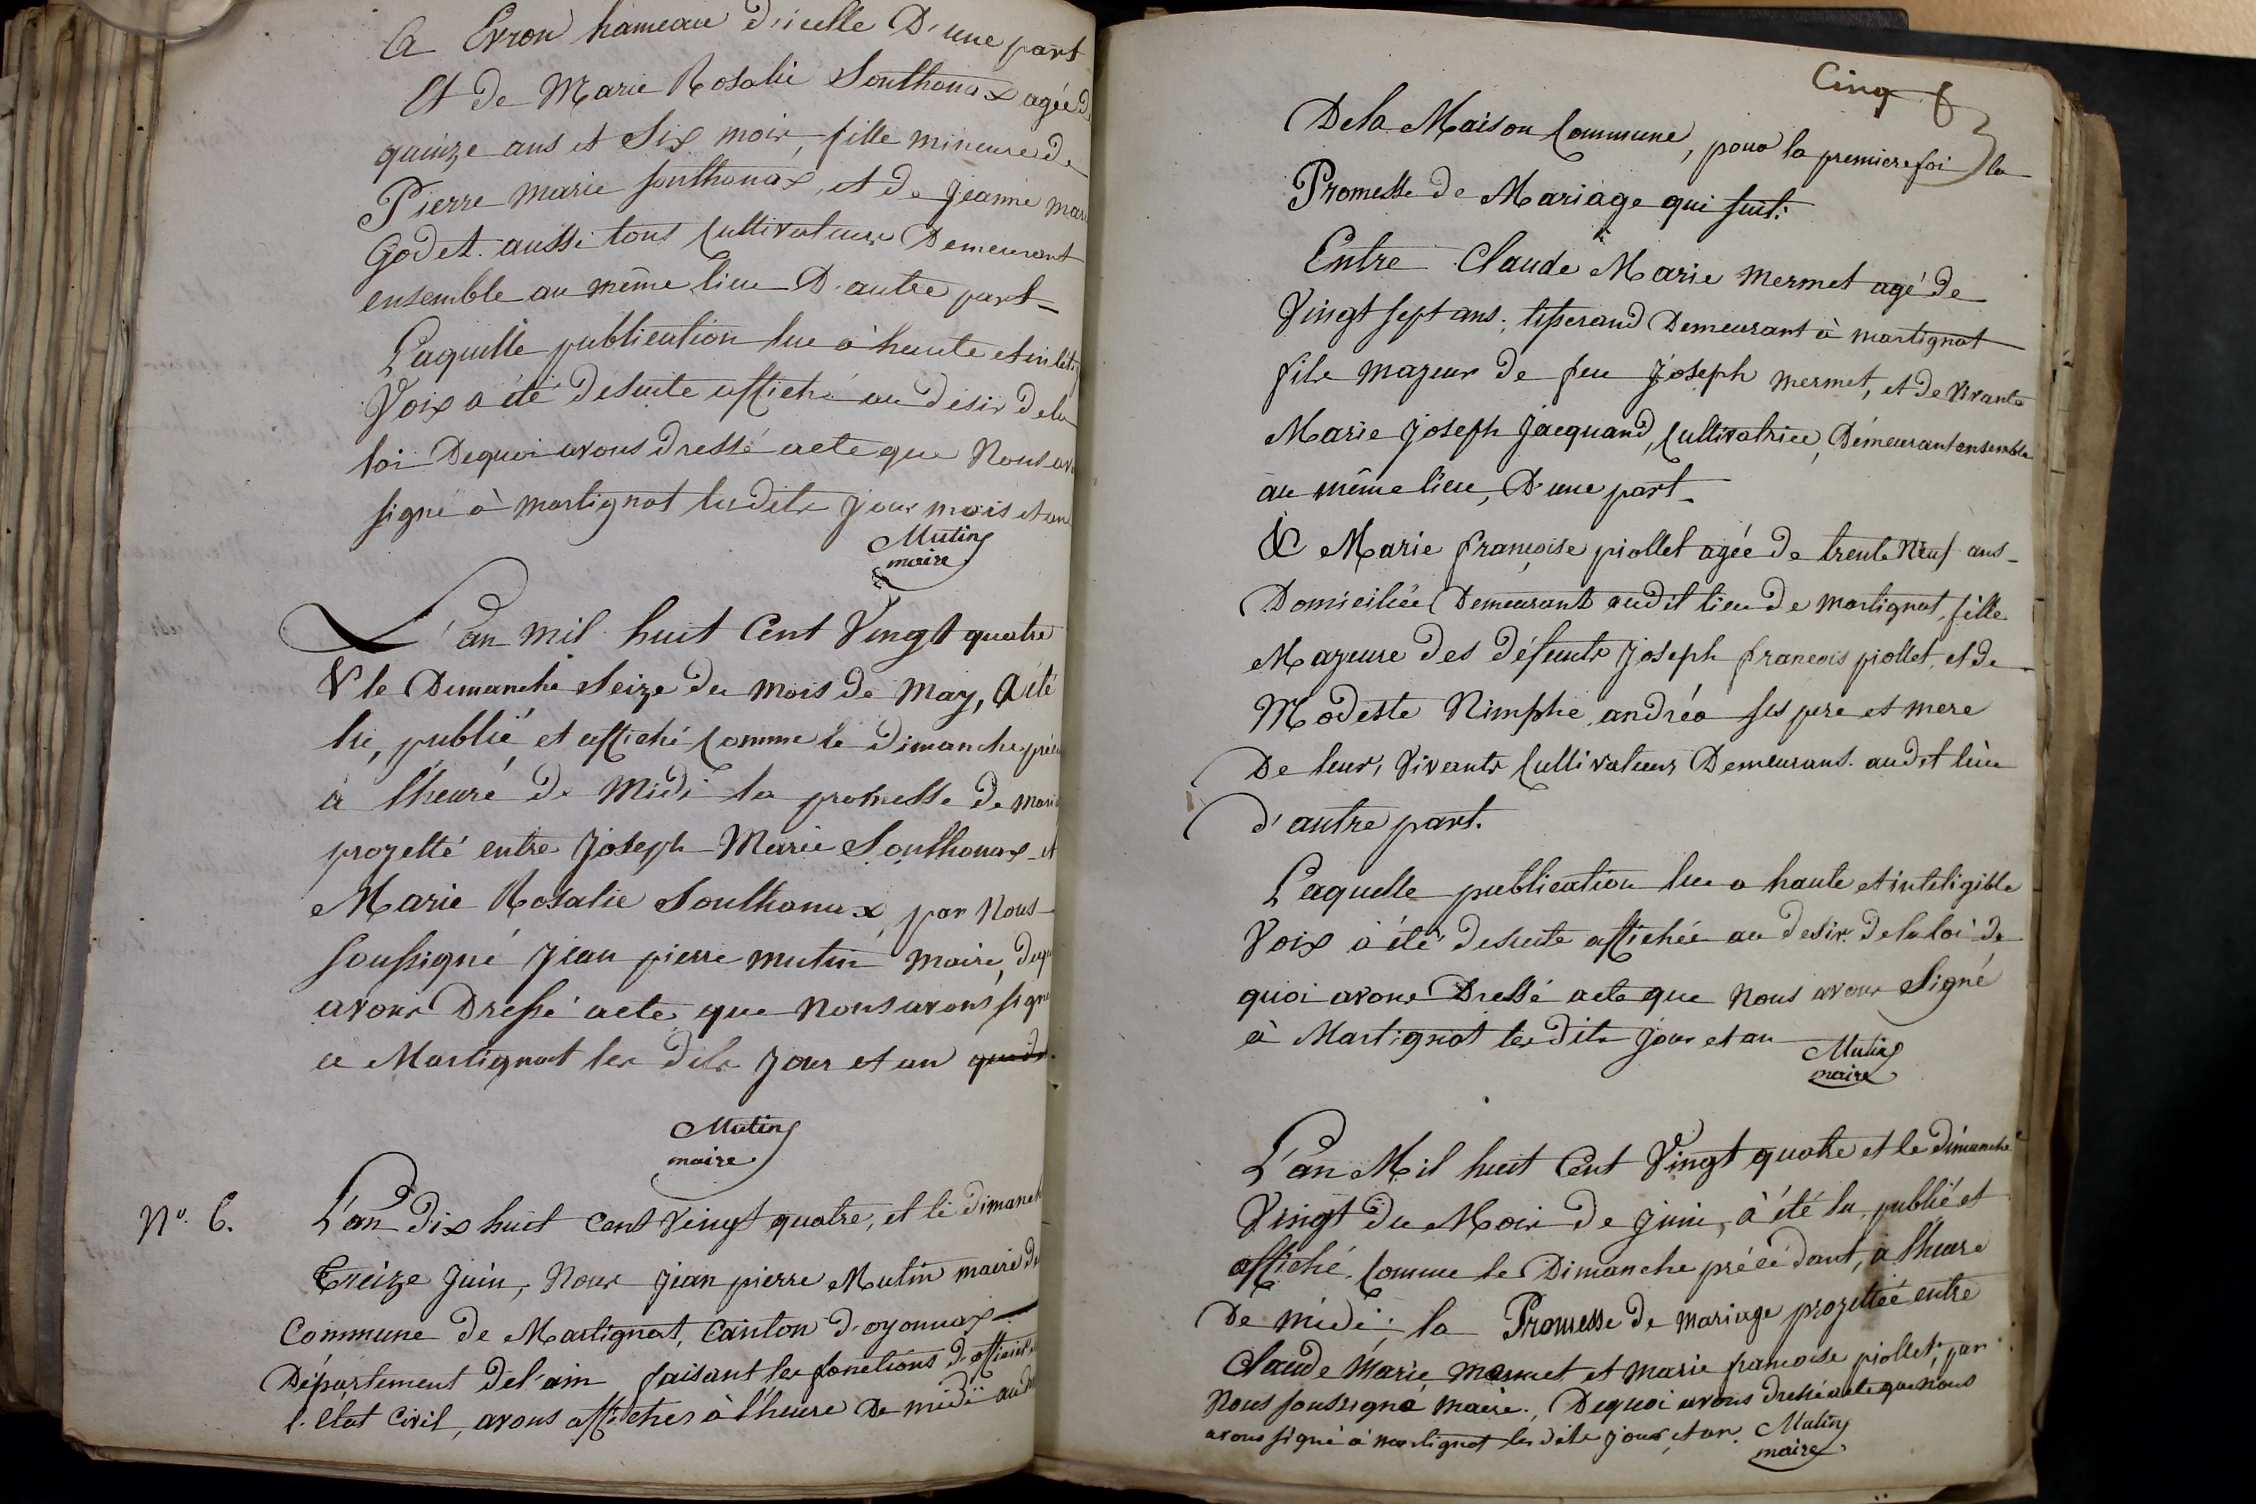 A Evron hameau d'icelle D'une part
Et de Marie Rosalie Sonthonax agée d
quinze ans et Six mois, fille mineure de
Pierre Marie Sonthonax, et de Jeanne Mar
Godet. aussi tous Cultivateurs Demeurant
ensemble au même lieu D'autre part
Laquelle publication lue à haute et intelig
Voix a été desuite affiché au desir dela
loi Dequoi avons Dressé acte que Nous av
signé à Martignat lesdits jour mois et an
Mutin
maire
L'an mil huit Cent Vingt quatre
& le Dimanche Seize du mois de May, a été
lu, publié, et affiché Comme le dimanche préc
à l'heure de Midi la promesse de mari
projetté entre Joseph Marie Sonthonax et
Marie Rosalie Sonthonax, par Nous
soussigné Jean pierre mutin Maire, dequ
avons Dressé acte que Nous avons signé
a Martignat les dits Jour et an
Mutin
maire
N°. 6.
L'an dix huit cent Vingt quatre, et le dimanch
Treize Juin, Nous Jean pierre Mutin maire de
Commune de Martignat, Canton d'oyonnax
Département del'ain faisant les fonctions d'officier
l'Etat Civil, avons affichés à l'heure De midi au
Cinq 5
Dela Maison Commune, pour la premiere foi la
Promesse de Mariage qui suit:
Entre Claude Marie Mermet agé de
Vingt sept ans. tisserand Demeurant à Martignat
fils majeur de feu Joseph Mermet, et de Vivante
Marie Joseph Jacquand, Cultivatrice, Démeurant ensemble
au même lieu, D'une part
& Marie françoise piollet agée de trente Neuf ans
Domiciliée Demeurant audit lieu de Martignat, fille
Majeure des défunts Joseph francois piollet, et de
Modeste Nimphe andréa ses pere et mere
De leurs Vivants Cultivateurs Demeurans. audit lieu
d'autre part.
Laquelle publication lue a haute et inteligible
Voix à été desuite affichée au desir dela loi de
quoi avons Dressé acte que Nous avons Signé
à Martignat lesdits jour et an
Mutin
maire
L'an Mil huit Cent Vingt quatre et le dimanche
Vingt du Mois de Juin, à été lu, publié et
affiché. Comme le Dimanche précédant, à l'heure
De midi; la Promesse de mariage projettée entre
Claude Marie Mermet et Marie francoise piollet, par
Nous soussigné maire. Dequoi avons dressé acte que nous
avons signé à Martignat les dits jour et an. Mutin
maire